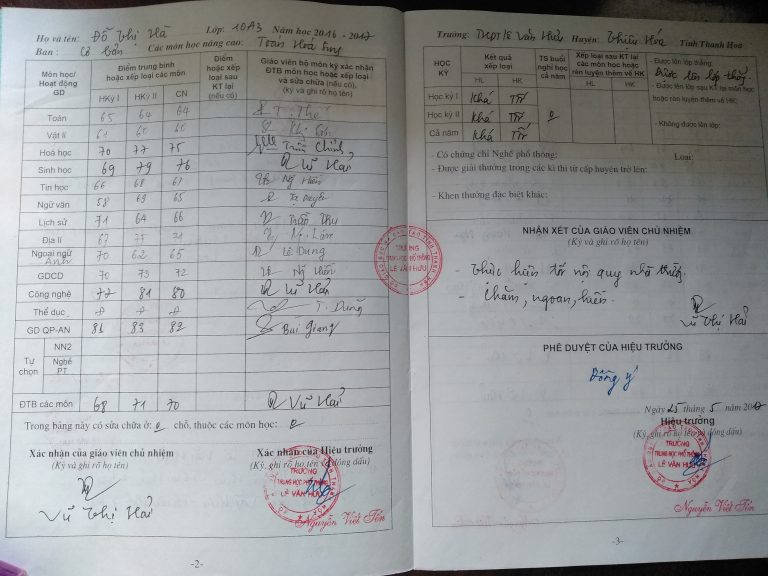 Họ và tên: Đỗ Thị Hà Lớp: 10A3 Năm học 2016 - 2017
Ban: Cơ bản Các môn học nâng cao: Toán Hoá
Môn học/ Hoạt động GD
Điểm trung bình hoặc xếp loại các môn
HKỳ I HKỳ II CN
Điểm hoặc xếp loại sau KT lại (nếu có)
Giáo viên bộ môn ký xác nhận ĐTB môn học hoặc xếp loại và sửa chữa (nếu có). (ký và ghi rõ họ tên)
Toán 65 64 64
Vật lí 61 60 60
Hoá học 70 77 75 Trần Chinh
Sinh học 69 79 76 Vũ Hải
Tin học 66 68 67 Ng Hiền
Ngữ văn 58 69 65
Lịch sử 71 64 66 Trần Thu
Địa lí 67 75
Ngoại ngữ Anh 70 62 65 Lê Dung
GDCD 70 73 72
Công nghệ 77 81 80 Vũ Hải
Thể dục đ đ đ T. Dũng
GD QP-AN 81 83 82 Bùi Giang
Tự chọn
NN2
Nghề PT
ĐTB các môn 68 71 70 Vũ Hải
Trong bảng này có sửa chữa ở: 0 chỗ, thuộc các môn học: 0
Xác nhận của giáo viên chủ nhiệm
(Ký và ghi rõ họ tên)
Vũ Thị Hải
Xác nhận của Hiệu trưởng
(Ký, ghi rõ họ tên và đóng dấu)
TRƯỜNG
TRUNG HỌC PHỔ THÔNG
LÊ VĂN HƯU
Nguyễn Viết Tôn
-2-
Trường: THPT Lê Văn Hưu Huyện: Thiệu Hóa Tỉnh Thanh Hoá
HỌC KỲ
Kết quả xếp loại
HL HK
TS buổi nghỉ học cả năm
Xếp loại sau KT lại các môn học hoặc rèn luyện thêm về HK
HL HK
Học kỳ I Khá Tốt
Học kỳ II Khá Tốt 0
Cả năm Khá Tốt
- Được lên lớp thẳng:
Được lên lớp thẳng
- Được lên lớp sau KT lại môn học hoặc rèn luyện thêm về HK:
- Không được lên lớp:
- Có chứng chỉ Nghề phổ thông: Loại:
- Được giải thưởng trong các kì thi từ cấp huyện trở lên:
- Khen thưởng đặc biệt khác:
TRƯỜNG
TRUNG HỌC PHỔ THÔNG
LÊ VĂN HƯU
NHẬN XÉT CỦA GIÁO VIÊN CHỦ NHIỆM
(Ký và ghi rõ họ tên)
- Thực hiện tốt nội quy nhà trường.
- Chăm, ngoan, hiền.
Vũ Thị Hải
PHÊ DUYỆT CỦA HIỆU TRƯỞNG
Đồng ý
Ngày 25 tháng 5 năm 2017
Hiệu trưởng
(Ký, ghi rõ họ tên và đóng dấu)
TRƯỜNG
TRUNG HỌC PHỔ THÔNG
LÊ VĂN HƯU
Nguyễn Viết Tôn
-3-